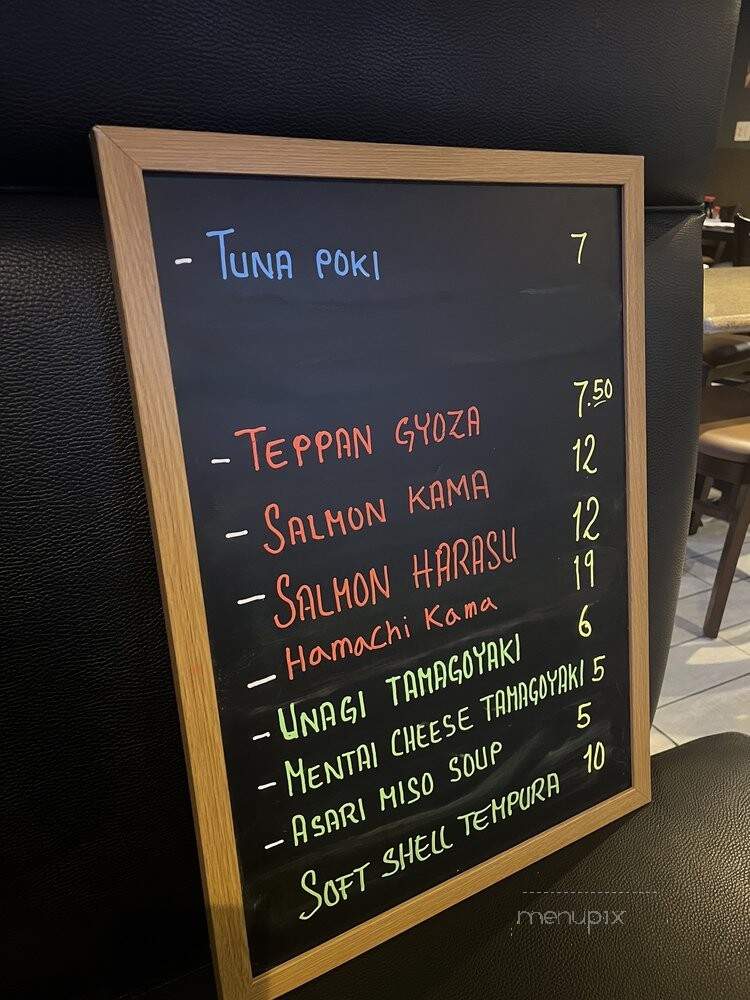 - TUNA POKI 7
- TEPPAN GYOZA 7.50
- SALMON KAMA 12
- SALMON HARASU 12
- Hamachi Kama 19
- UNAGI TAMAGOYAKI 6
- MENTAI CHEESE TAMAGOYAKI 5
- ASARI MISO SOUP 5
SOFT SHELL TEMPURA 10
menupix